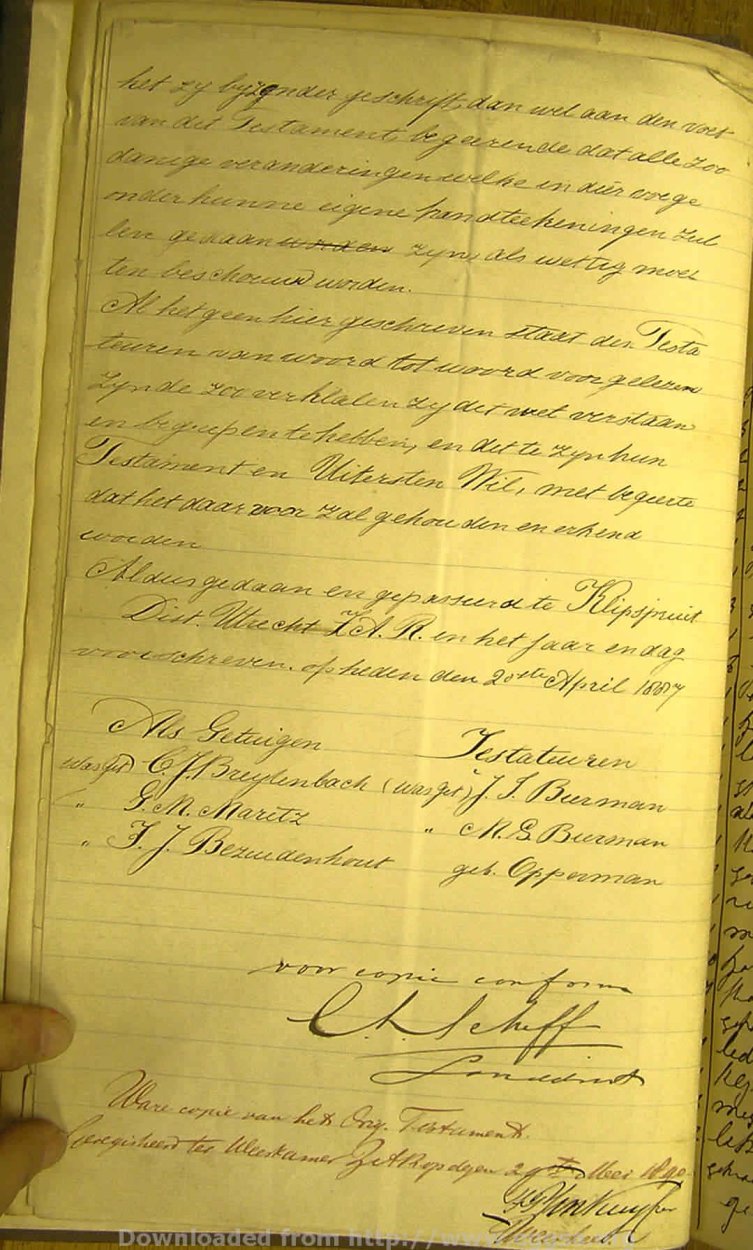 het zy byzonder geschrift, dan wel aan den voet
van dit Testament, begeerende dat alle zoo
danige veranderingen welke in dier voege
onder hunne eigene handteekeningen zul
len gedaan worden zyn, als wettig moe
ten beschouwd worden.
Al hetgeen hier geschreven staat den Testa
teuren van woord tot woord voorgelezen
zynde zoo verklalen zy dit wel verstaan
en begrepen te hebben, en dit te zyn hun
Testament en Uitersten Wil, met begeerte
dat het daarvoor zal gehouden en erkend
worden
Aldus gedaan en gepasseerd te Klipspruit
Dist. Utrecht Z.A.R. in het jaar en dag
voorschreven. op heden den 20ste April 1887
Als Getuigen
Testateuren
(was get) C. J. Breytenbach (was get) J. S. Burman
" G. M. Maritz " M. E. Buurman
" F. J. Bezuidenhout geb. Opperman
voor copie conform
Landdrost
Ware copie van het Org. Testament.
Geregistreerd ter Weeskamer Z.A.R. op dezen Mei 1890
Weesheer
Downloaded from http://www